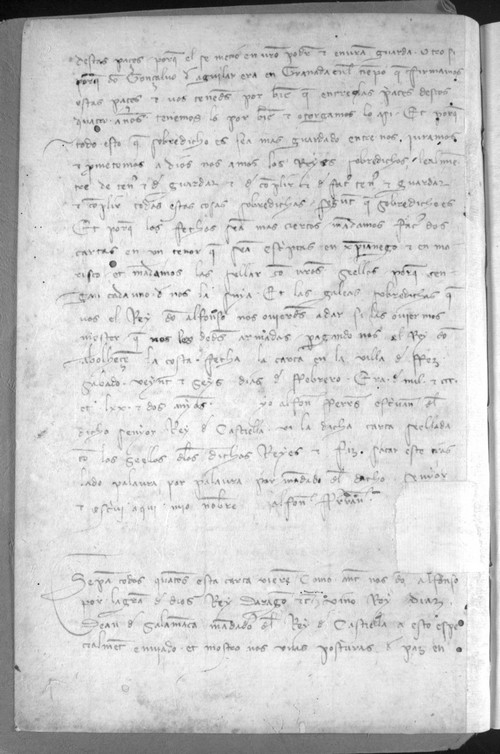 destas paçes porq el se mete en uro poder & en ura guarda. Otro si
porq do Gonçaluo d aguilar era en Granada en el tiepo q firmamos
estas paçes & uos tenedes por bie q entre en las paçes destos
quatro años tenemos lo por bie & otorgamos lo assi. Et porq
todo esto q sobredicho es sea mas guardado entre nos. juramos
& pmetemos a dios nos amos los Reyes sobredichos lealmie
tre de tener & d guardar & d complir & d fazer tener & guardar
& complir todas estas cosas sobredichas segunt q sobredicho es
Et porq los fechos sea mas ciertos madamos fazer dos
cartas en un tenor q sea escriptas en xpianego & en mo
risco et madamos las sellar co uros sellos porq ten
gan cada uno d nos la suya Et las galeas sobredichas q
uos el Rey do alfonso nos ouieredes a dar si las ouiermos
mester q nos les dedes armadas pagando nos al Rey do
alfonso la costa. fecha la carta en la villa d Fez
Sabado. veynt & seys dias d Febrero. Era d mil & ccc
et lxx & dos anyos. yo alfon Peres escriuan del
dicho senyor Rey d Castiella vi la dicha carta seellada
co los seellos dlos dichos Reyes & fiz sacar este tras
lado palaura por palaura por madado del dicho senyor
& escriui aqui mio nombre alfon
Sepa todos quantos esta carta vieren Como ante nos do alfonso
por la gra d dios Rey Darago &c vino Roy diaz
Dean d Salamaca madado del Rey d Castiella a esto espe
cialment enuiado et mostro nos unas posturas d paz en